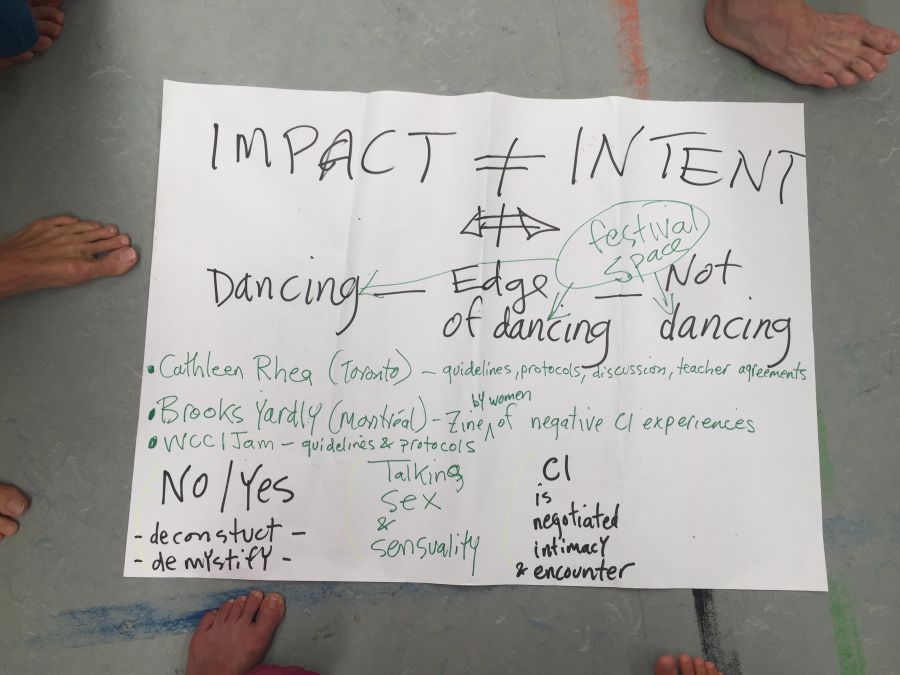 IMPACT ≠ INTENT
festival
space
Dancing — Edge of dancing — Not dancing
• Cathleen Rhea (Toronto) – guidelines, protocols, discussion, teacher agreements
• Brooks Yardly (Montréal) – Zine by women of negative CI experiences
• WCCIJam – guidelines & protocols
No/Yes
- deconstuct -
- demystify -
Talking
sex
&
sensuality
CI
is
negotiated
intimacy
& encounter